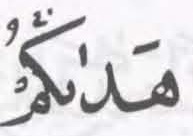 هَدَىٰكُمْ